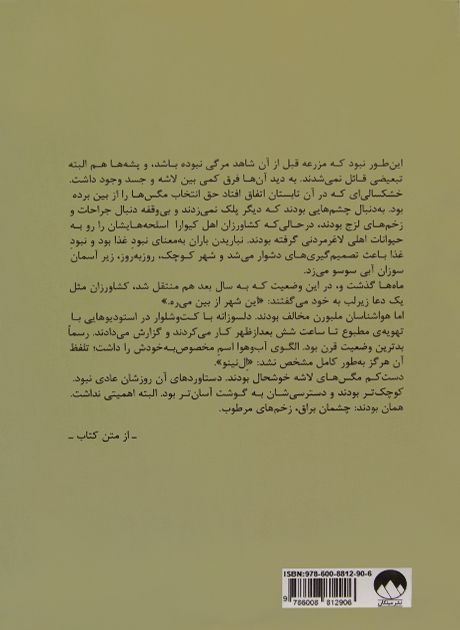 این‌طور نبود که مزرعه قبل از آن شاهد مرگی نبوده باشد، و پشه‌ها هم البته
تبعیضی قائل نمی‌شدند. به دید آن‌ها فرق کمی بین لاشه و جسد وجود داشت.
خشکسالی‌ای که در آن تابستان اتفاق افتاد حق انتخاب مگس‌ها را از بین برده
بود. به‌دنبال چشم‌هایی بودند که دیگر پلک نمی‌زدند و بی‌وقفه دنبال جراحات و
زخم‌های لزج بودند، درحالی‌که کشاورزان اهل کیوارا اسلحه‌هایشان را رو به
حیوانات اهلی لاغرمردنی گرفته بودند. نباریدن باران به‌معنای نبودِ غذا بود و نبودِ
غذا باعث تصمیم‌گیری‌های دشوار می‌شد و شهر کوچک، روزبه‌روز، زیر آسمان
سوزان آبی سوسو می‌زد.
ماه‌ها گذشت و، در این وضعیت که به سال بعد هم منتقل شد، کشاورزان مثل
یک دعا زیرلب به خود می‌گفتند: «این شهر از بین می‌ره.»
اما هواشناسان ملبورن مخالف بودند. دلسوزانه با کت‌وشلوار در استودیوهایی با
تهویه‌ی مطبوع تا ساعت شش بعدازظهر کار می‌کردند و گزارش می‌دادند. رسماً
بدترین وضعیت قرن بود. الگوی آب‌وهوا اسم مخصوص‌به‌خودش را داشت؛ تلفظ
آن هرگز به‌طور کامل مشخص نشد: «اِل‌نینو».
دست‌کم مگس‌های لاشه خوشحال بودند. دستاوردهای آن روزشان عادی نبود.
کوچک‌تر بودند و دسترسی‌شان به گوشت آسان‌تر بود. البته اهمیتی نداشت.
همان بودند: چشمان براق، زخم‌های مرطوب.
ـ از متن کتاب ـ
ISBN:978-600-8812-90-6
9 786008 812906
نشر میلکان